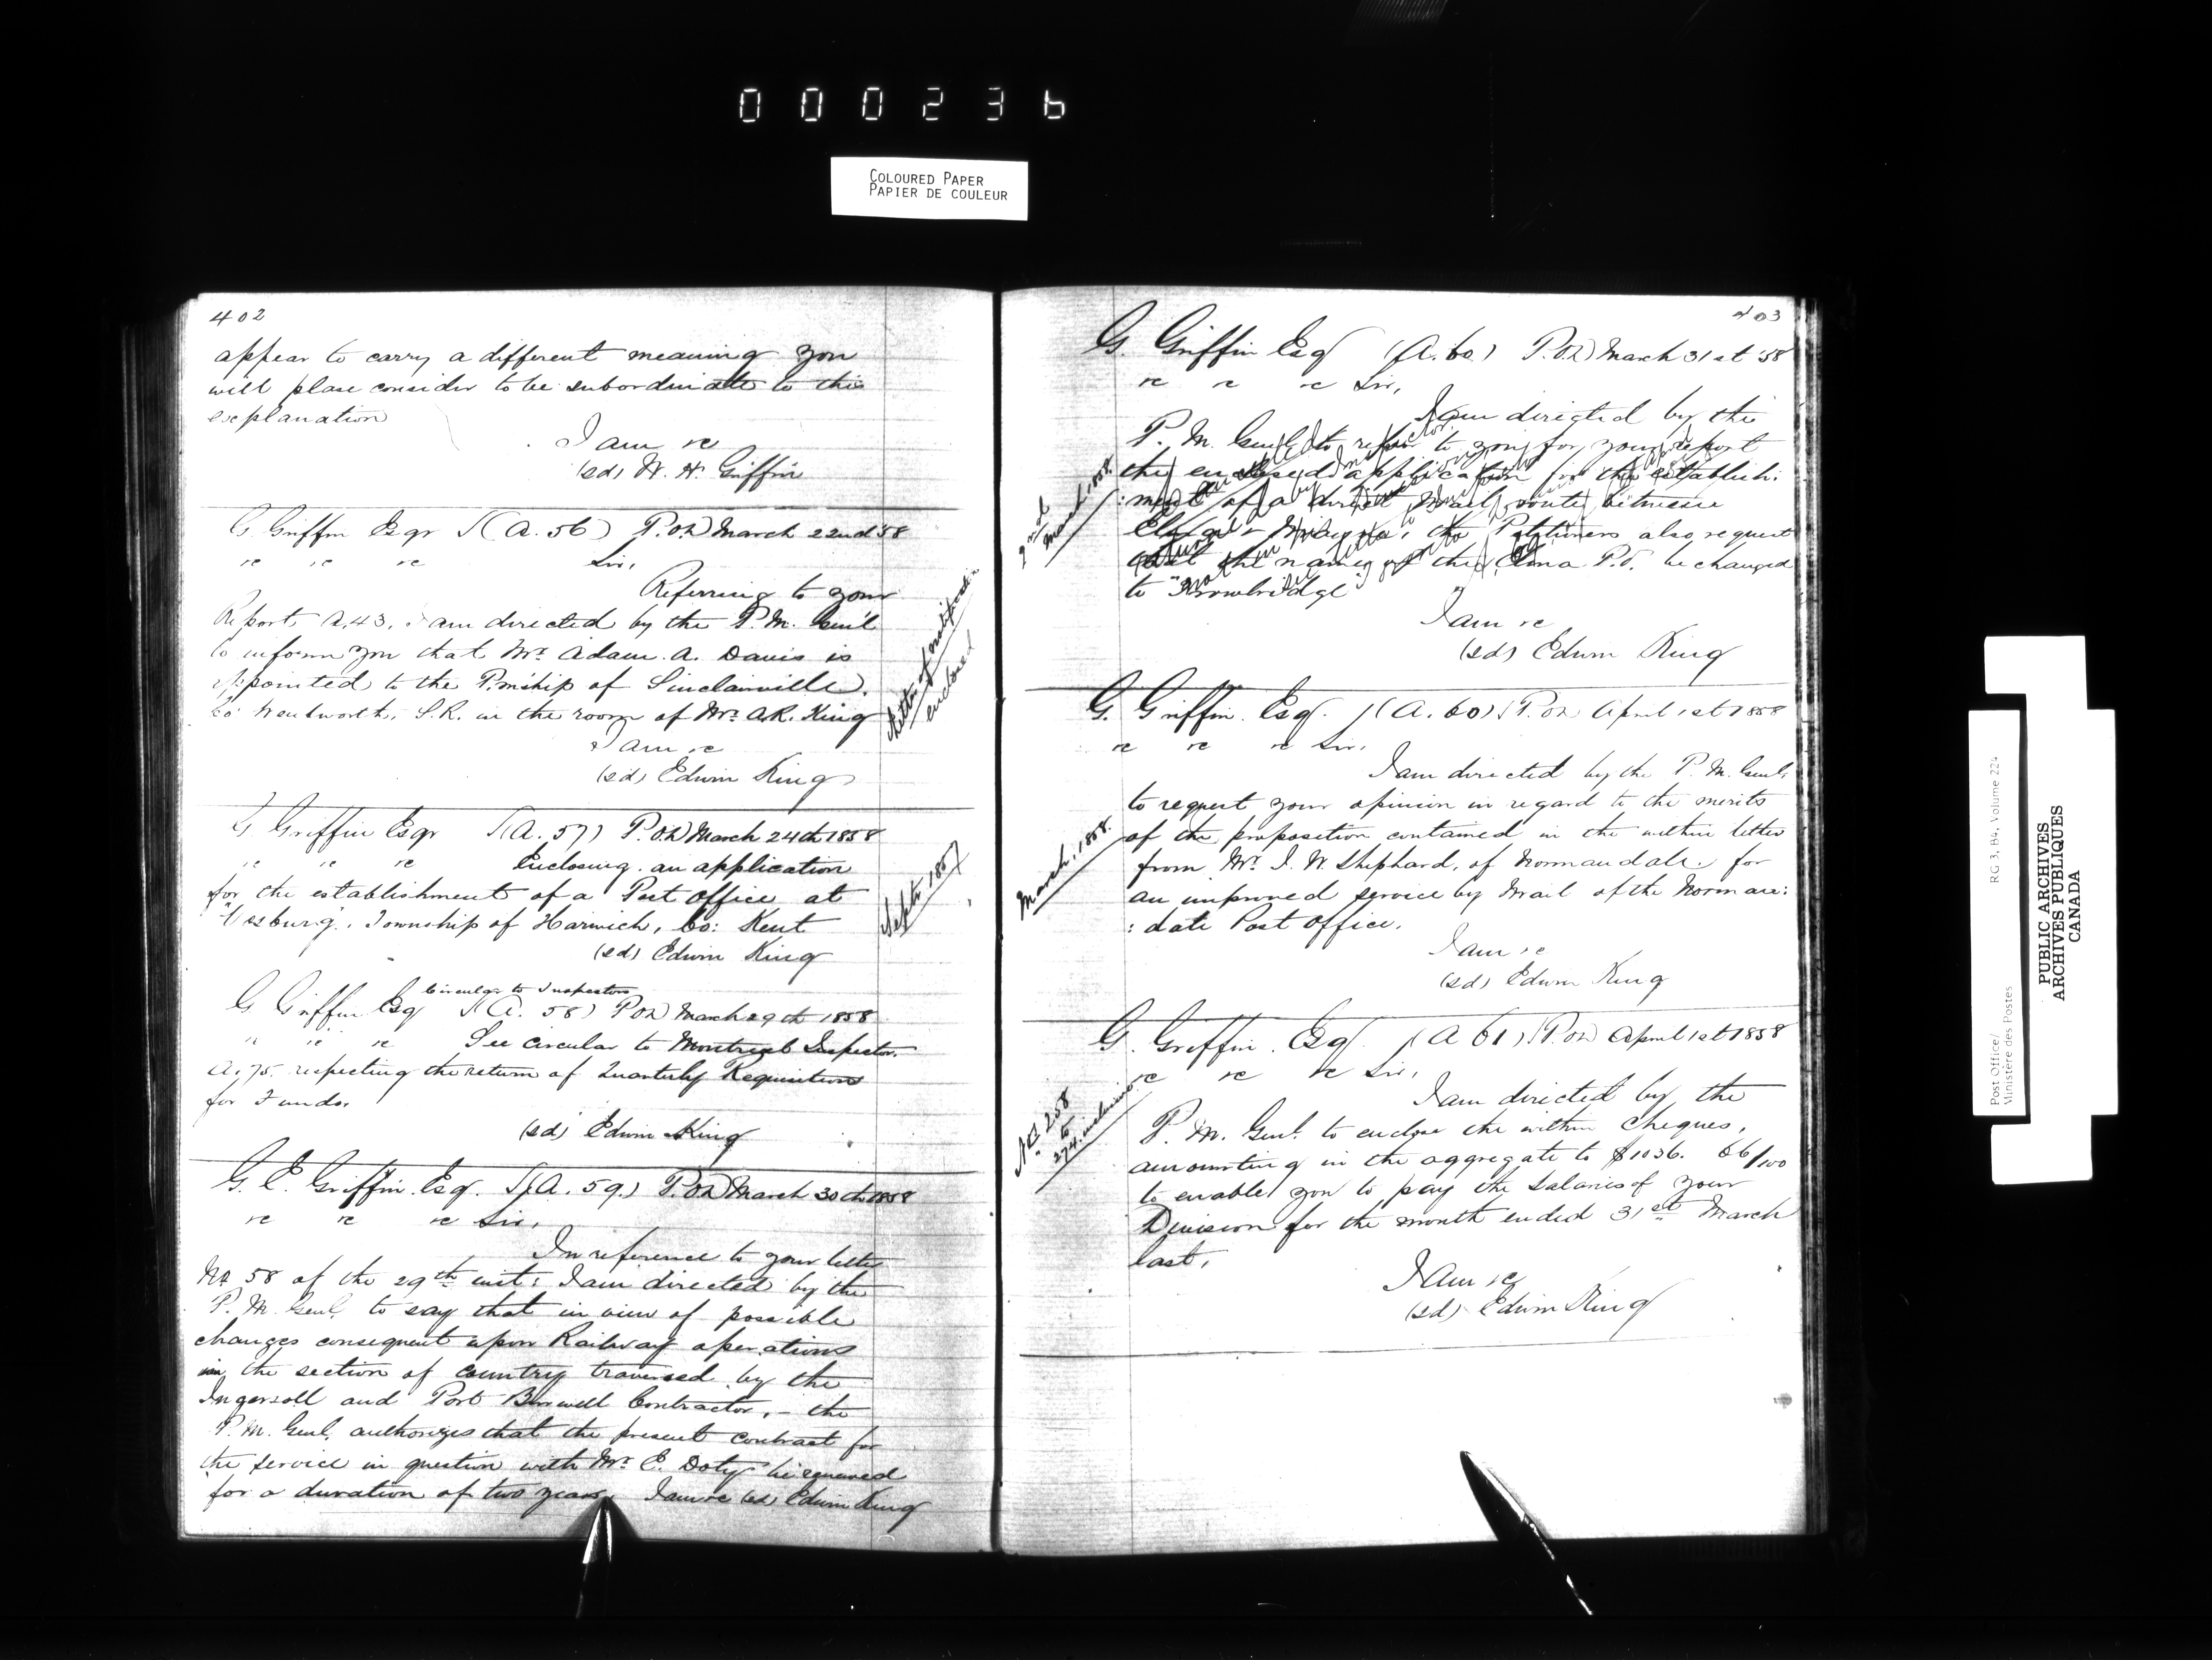 000236
COLOURED PAPER
PAPIER DE COULEUR
402
appear to carry a different meaning you
will please consider to be subordinate to this
explanation
I am &c
(sd) W. H. Griffin
G Griffin Esqr (A. 56) P.O.D March 22nd 58
&c &c &c Sir,
Referring to your
Report, A.43. I am directed by the P.M. Genl
to inform you that Mr. Adam A. Davis is
appointed to the P.mship of Sinclairville.
Co Wentworth, S.R. in the room of Mr. A.R. King
I am &c
(sd) Edwin King
Letter of notification
enclosed
G Griffin Esqr (A. 57) P.O.D March 24th 1858
" " &c Enclosing an application
for the establishment of a Post Office at
Township of Harwich, Co: Kent
(sd) Edwin King
Septr 1857
Circular to Inspectors
G Griffin Esq (A. 58) P.O.D March 29th 1858
" " &c See circular to Montreal Inspector.
A. 75. respecting the return of Quarterly Requisitions
for Funds.
(sd) Edwin King
G. E. Griffin Esq. (A. 59.) P.O.D March 30th 1858
&c &c &c Sir,
In reference to your letter
No 58 of the 29th inst: I am directed by the
P. M. Genl. to say that in view of possible
changes consequent upon Railway operations
in the section of country traversed by the
Ingersoll and Port Burwell Contractor, - the
P.M. Genl. authorizes that the present contract for
the service in question with Mr. E. Doty be renewed
for a duration of two years. I am &c (sd) Edwin King
403
G. Griffin Esq (A. 60.) P.O.D March 31st 58
&c &c &c Sir,
I am directed by the
P. M. Genl. to refer to you for your report
the enclosed application for the establish:
:ment of a direct Mail route between
the Petitioners also request
that the name of the Elma P.O. be changed
to "Trowbridge"
I am &c
(sd) Edwin King
2nd
March, 1858.
G. Griffin. Esq. (A. 60) P.O.D April 1st 1858
&c &c &c Sir,
I am directed by the P. M. Genl.
to request your opinion in regard to the merits
of the proposition contained in the within letter
from Mr. I. W. Shephard, of Normandale. for
an improved service by Mail of the Norman:
:dale Post Office.
I am &c
(sd) Edwin King
March, 1858.
G. Griffin. Esq (A 61) P.O.D April 1st 1858
&c &c &c Sir,
I am directed by the
P. M. Genl. to enclose the within Cheques,
amounting in the aggregate to $1036. 66/100
to enable you to pay the Salaries of your
Division for the month ended 31st March
last,
I am &c
(sd) Edwin King
No 258
to
274. inclusive
Post Office/
Ministère des Postes
RG 3, B4, Volume 224
PUBLIC ARCHIVES
ARCHIVES PUBLIQUES
CANADA